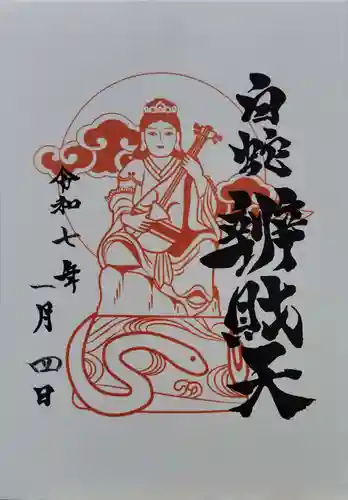 白蛇
辨財天
令和七年
一月四日